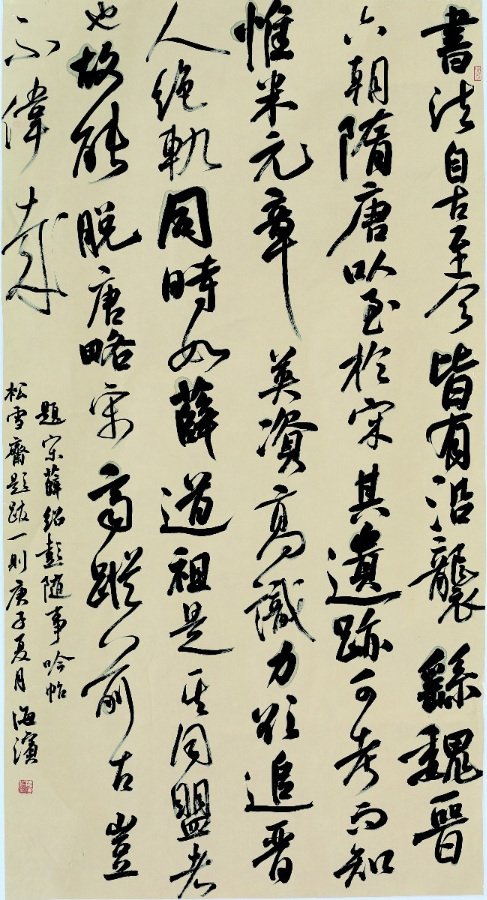 書法自古至今皆有沿襲繇魏晉
六朝隋唐以至於宋其遺跡可考而知
惟米元章英資高識力欲追晉
人絶軌同時如薛道祖是其同盟者
也故能脫唐略宋高蹤前古豈
不偉哉
題宋薛紹彭隨事吟帖
松雪齋題跋一則庚子夏月海濱